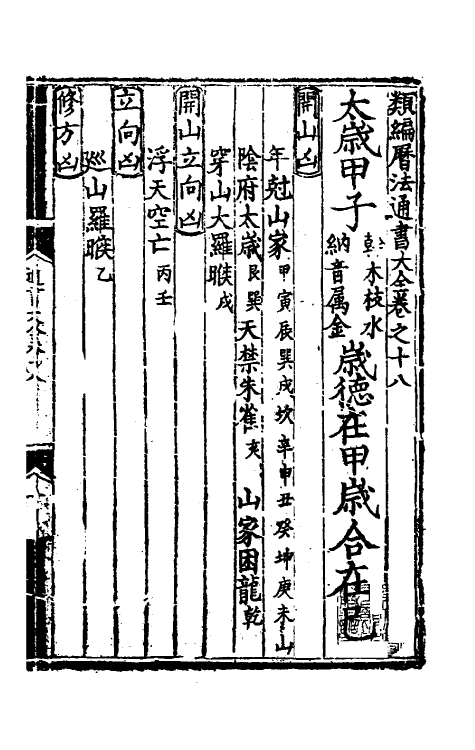 類編曆法通書大全卷之十八
太歲甲子 幹木枝水 納音属金 歲德在甲歲合在己
開山凶
年尅山家 甲寅辰巽戌坎辛申丑癸坤庚未山
陰府太歲 艮巽 天禁朱雀 亥 山家困龍 乾
穿山大羅睺 戌
開山立向凶
浮天空亡 丙壬
立向凶
廵山羅睺 乙
修方凶